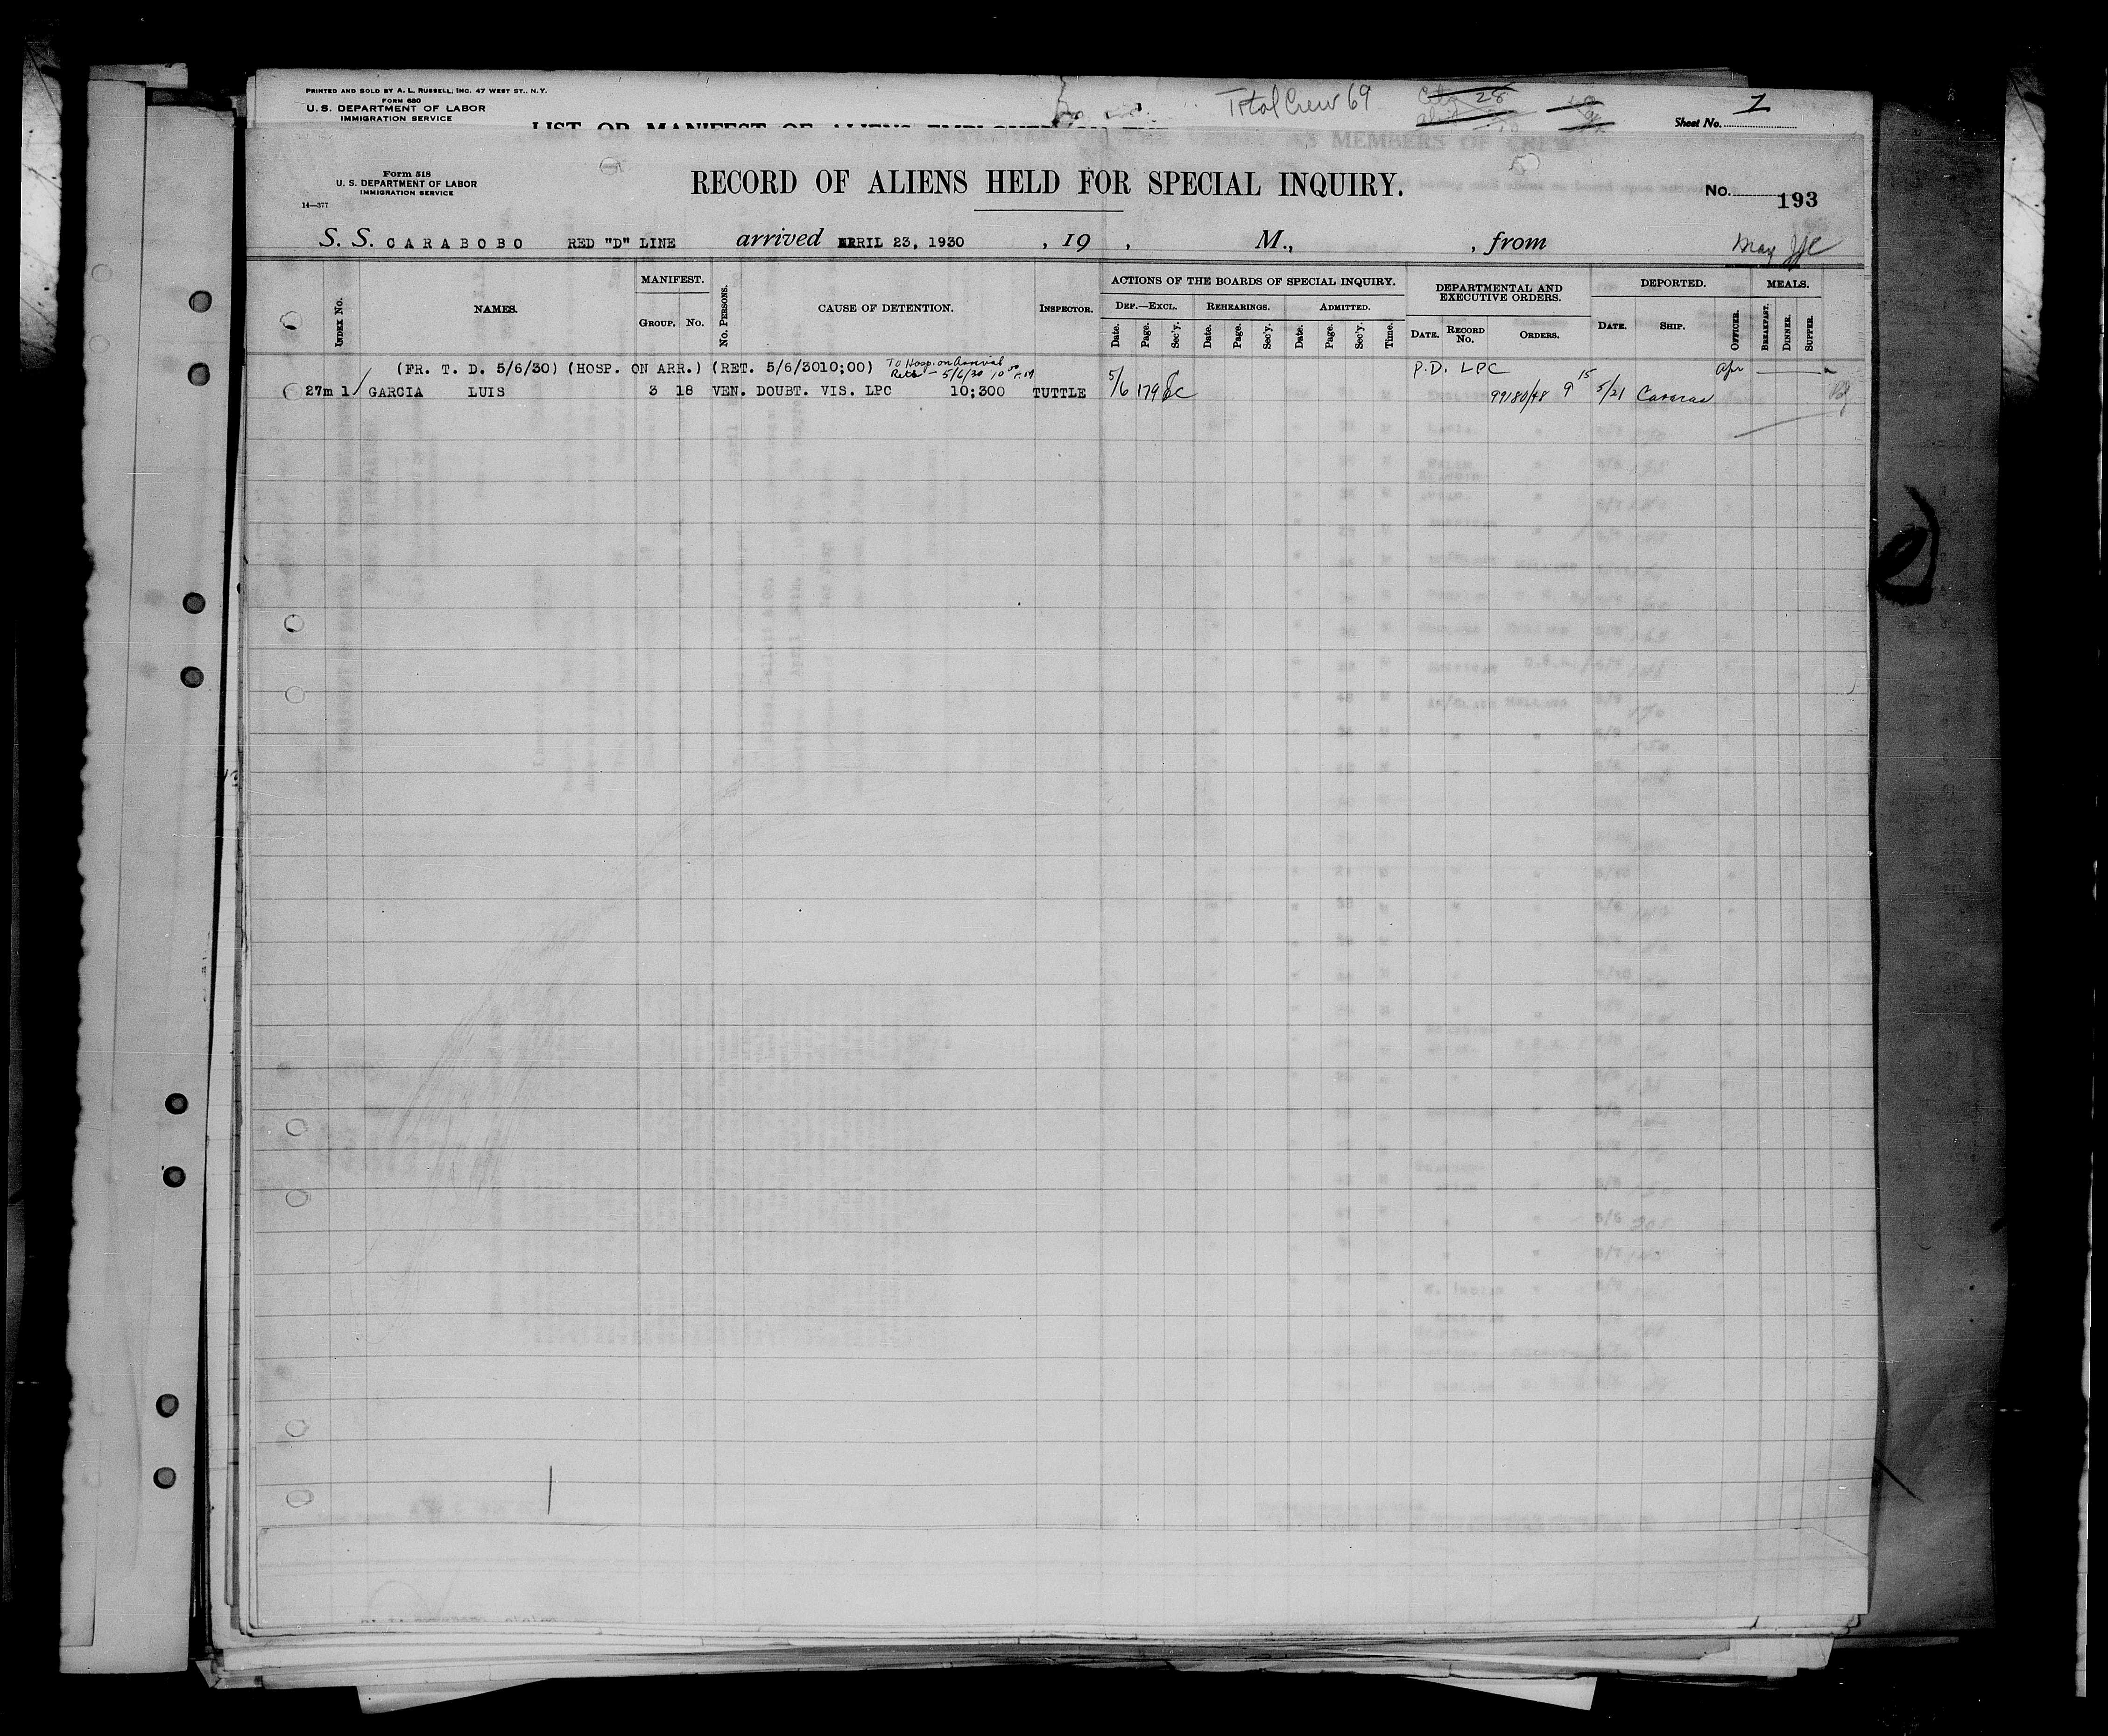 PRINTED AND SOLD BY A. L. RUSSELL, INC. 47 WEST ST., N.Y.
FORM 680
U. S. DEPARTMENT OF LABOR
IMMIGRATION SERVICE
Total Crew 69
28
Sheet No. 1
LIST OR MANIFEST OF ALIENS EMPLOYED ON THE
AS MEMBERS OF CREW
Form 518
U. S. DEPARTMENT OF LABOR
IMMIGRATION SERVICE
14—377
RECORD OF ALIENS HELD FOR SPECIAL INQUIRY.
No. 193
S. S. CARABOBO RED "D" LINE arrived APRIL 23, 1930 , 19 , M., , from
May
INDEX No. NAMES. MANIFEST. GROUP. No. No. PERSONS. CAUSE OF DETENTION. INSPECTOR.
ACTIONS OF THE BOARDS OF SPECIAL INQUIRY.
DEF.—EXCL. REHEARINGS. ADMITTED.
Date. Page. Sec'y. Date. Page. Sec'y. Date. Page. Sec'y. Time.
DEPARTMENTAL AND EXECUTIVE ORDERS.
DATE. RECORD No. ORDERS.
DEPORTED.
DATE. SHIP. OFFICER.
MEALS.
BREAKFAST. DINNER. SUPPER.
(FR. T. D. 5/6/30) (HOSP. ON ARR.) (RET. 5/6/3010;00) To Hosp. on Arrival P.D. LPC Apr
Retd – 5/6/30 10 00
27m 1/ GARCIA LUIS 3 18 VEN. DOUBT. VIS. LPC 10;300 TUTTLE 5/6 179 99180/48 9 15 5/21 Caracas